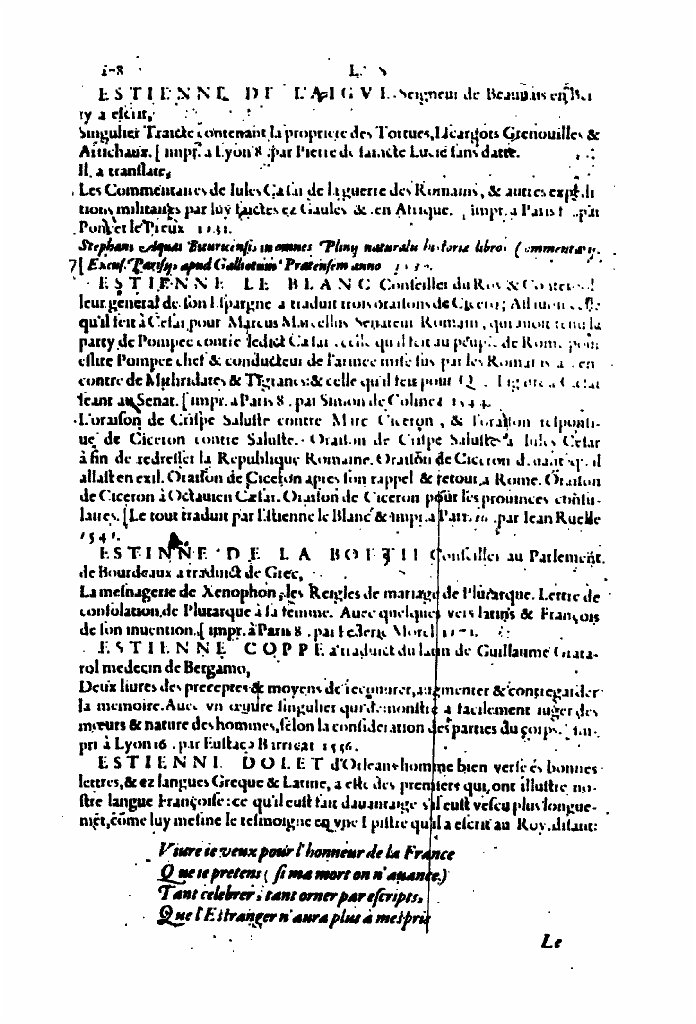 ESTIENNE DE L'AIGVE Seigneur de Beauuais en Ber
ry a escrit,
Singulier Traicte contenant la propriete des Tortues, Escargots Grenouilles &
Artichaux. [ impr. a Lyon 8 .par Pierre de sans datte.
Il a translate,
Les Commentaires de Iules Cesar de la guerre des Romains, & autres expedi
tions militaires par luy faictes ez Gaules & en Afrique. impr. a Paris par
Poncet le Preux 1531.
Stephani Aquæi Bituricensis in omnes Plinij naturalis historiæ libros Commentary.
[ Excus. Parisijs apud Galliotum Pratensem anno
ESTIENNE LE BLANC Conseiller du Roy &
leur general de son Espargne a traduit trois oraisons de Ciceron;
qu'il feit à Cesar pour Marcus Marcellus Senateur Romain, qui auoit tenu la
party de Pompee contre ledict Cesar celle qu'il feit au peuple de Rome pour
eslire Pompee chef & conducteur de l'armee mise sus par les Romains
contre de Mithridates & Tigranes: & celle qu'il feit pour Q. Ligare a Cesar
seant au Senat. [ impr. a Paris 8 . par Simon de Colines 1544.
L'oraison de Crispe Saluste contre Marc Ciceron, & l'oraison responsi-
ue de Ciceron contre Saluste. Oraison de Crispe Saluste a Iules Cesar
à fin de redresser la Republique Romaine. Oraison de Ciceron il
allast en exil. Oraison de Ciceron apres son rappel & retour a Rome. Oraison
de Ciceron à Octauien Cesar. Oraison de Ciceron pour les prouinces consu-
laires. [ Le tout traduit par Estienne le Blanc & impr. a Paris 16 .par Iean Ruelle
1541.
ESTINNE DE LA BOETIE Conseiller au Parlement
de Bourdeaux a traduict de Grec,
La mesnagerie de Xenophon, les Reigles de mariage de Plutarque. Lettre de
consolation, de Plutarque à sa femme. Auec quelques vers latins & François
de son inuention. [ impr. à Paris 8 . par Federic Morel 1571.
ESTIENNE COPPE a traduict du latin de Guillaume Grata-
rol medecin de Bergamo,
Deux liures des preceptes & moyens de recouurer, augmenter & contregarder
la memoire. Auec vn œuure singulier qui demonstre a facilement iuger des
mœurs & nature des hommes, selon la consideration des parties du corps. [ im-
pri à Lyon 16 . par Eustace Barricat 1556.
ESTIENNE DOLET d'Orleans homme bien versé és bonnes
lettres, & ez langues Greque & Latine, a este des premiers qui ont illustre no-
stre langue Françoise: ce qu'il eust fait dauantaige s'il eust vescu plus longue-
mẽt, cõme luy mesme le tesmoigne en vne Epistre qu'il a escrit au Roy, disant:
Viure ie veux pour l'honneur de la France
Que ie pretens ( si ma mort on n'auance.)
Tant celebrer, tant orner par escripts,
Que l'Estranger n'aura plus à mespris
Le